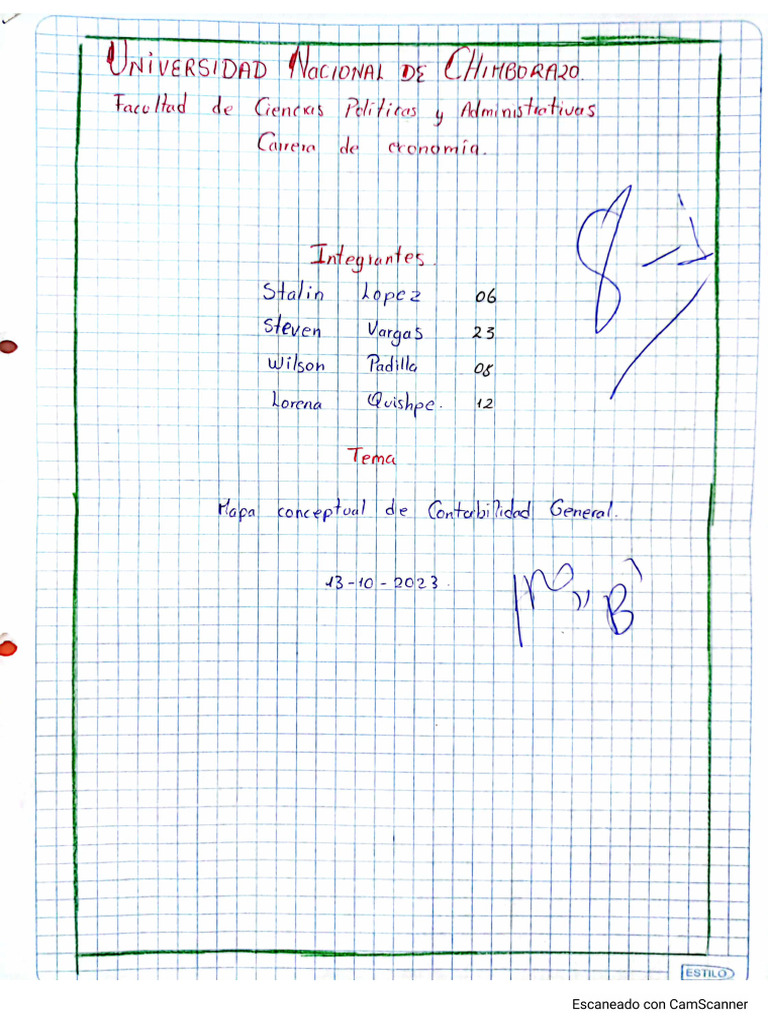 UNIVERSIDAD NACIONAL DE CHIMBORAZO.
Facultad de Ciencias Politicas y Administrativas
Carrera de economía.
Integrantes.
Stalin Lopez 06
Steven Vargas 23
Wilson Padilla 08
Lorena Quishpe. 12
Tema
Mapa conceptual de Contabilidad General.
13-10-2023.
ESTILO
Escaneado con CamScanner